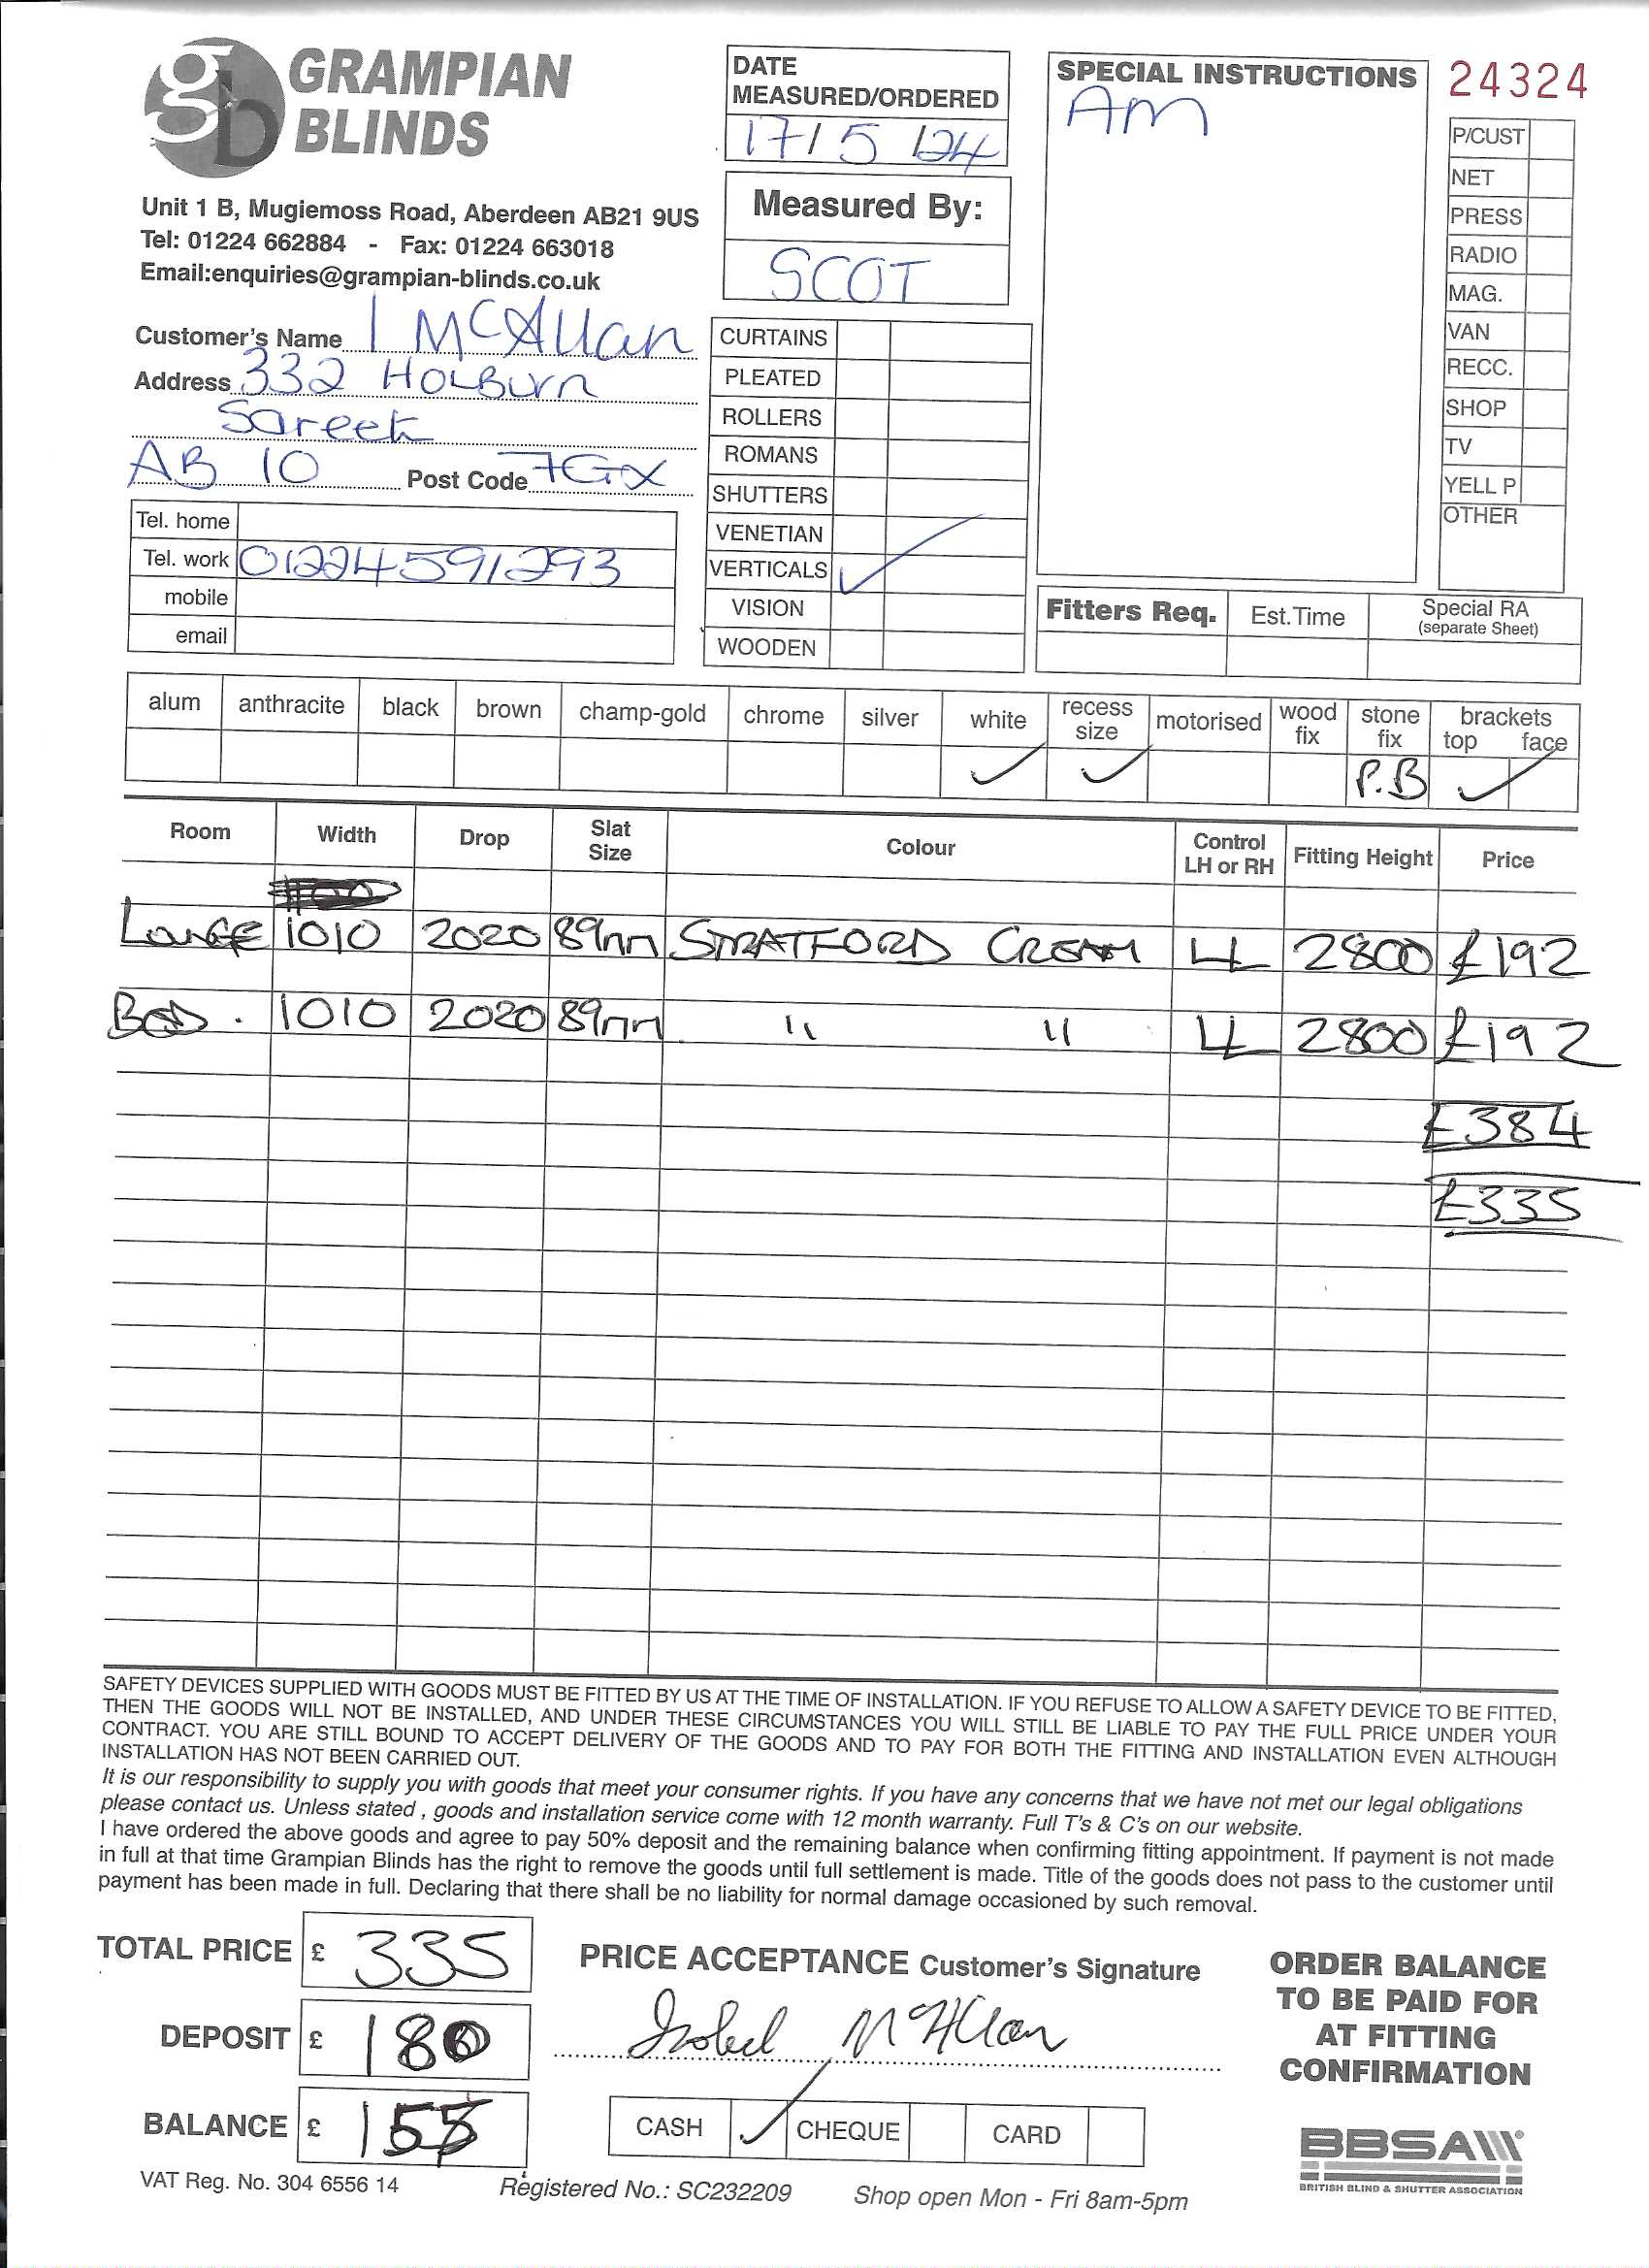 GRAMPIAN
BLINDS
Unit 1 B, Mugiemoss Road, Aberdeen AB21 9US
Tel: 01224 662884 - Fax: 01224 663018
Email:enquiries@grampian-blinds.co.uk
Customer's Name I McAllan
Address 332 Holburn
Sareet
AB 10 Post Code 7GX
Tel. home
Tel. work 01224591293
mobile
email
DATE
MEASURED/ORDERED
17/5/24
Measured By:
SCOT
CURTAINS
PLEATED
ROLLERS
ROMANS
SHUTTERS
VENETIAN
VERTICALS ✓
VISION
WOODEN
SPECIAL INSTRUCTIONS
AM
24324
P/CUST
NET
PRESS
RADIO
MAG.
VAN
RECC.
SHOP
TV
YELL P
OTHER
Fitters Req. Est.Time Special RA
(separate Sheet)
alum anthracite black brown champ-gold chrome silver white recess size motorised wood fix stone fix brackets top face
✓ ✓ P.B ✓
Room Width Drop Slat Size Colour Control LH or RH Fitting Height Price
Lounge 1010 2020 89mm STRATFORD CREAM LL 2800 £192
BED. 1010 2020 89mm " " LL 2800 £192
£384
£335
SAFETY DEVICES SUPPLIED WITH GOODS MUST BE FITTED BY US AT THE TIME OF INSTALLATION. IF YOU REFUSE TO ALLOW A SAFETY DEVICE TO BE FITTED,
THEN THE GOODS WILL NOT BE INSTALLED, AND UNDER THESE CIRCUMSTANCES YOU WILL STILL BE LIABLE TO PAY THE FULL PRICE UNDER YOUR
CONTRACT. YOU ARE STILL BOUND TO ACCEPT DELIVERY OF THE GOODS AND TO PAY FOR BOTH THE FITTING AND INSTALLATION EVEN ALTHOUGH
INSTALLATION HAS NOT BEEN CARRIED OUT.
It is our responsibility to supply you with goods that meet your consumer rights. If you have any concerns that we have not met our legal obligations
please contact us. Unless stated , goods and installation service come with 12 month warranty. Full T's & C's on our website.
I have ordered the above goods and agree to pay 50% deposit and the remaining balance when confirming fitting appointment. If payment is not made
in full at that time Grampian Blinds has the right to remove the goods until full settlement is made. Title of the goods does not pass to the customer until
payment has been made in full. Declaring that there shall be no liability for normal damage occasioned by such removal.
TOTAL PRICE £ 335
DEPOSIT £ 180
BALANCE £ 155
PRICE ACCEPTANCE Customer's Signature
Isobel McAllan
CASH ✓ CHEQUE CARD
ORDER BALANCE
TO BE PAID FOR
AT FITTING
CONFIRMATION
BBSA
BRITISH BLIND & SHUTTER ASSOCIATION
VAT Reg. No. 304 6556 14 Registered No.: SC232209 Shop open Mon - Fri 8am-5pm